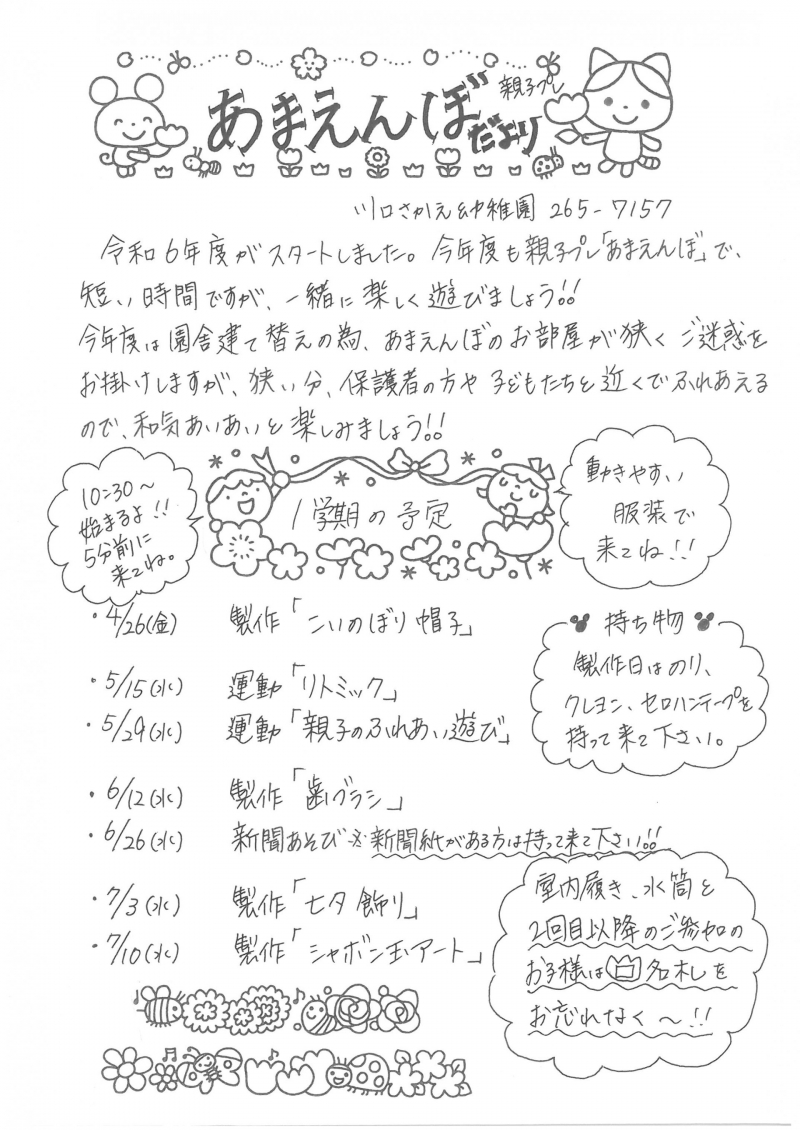 あまえんぼだより
親子プレ
川口さかえ幼稚園 265-7157
令和6年度がスタートしました。今年度も親子プレ「あまえんぼ」で、
短い時間ですが、一緒に楽しく遊びましょう!!
今年度は園舎建て替えの為、あまえんぼのお部屋が狭くご迷惑を
お掛けしますが、狭い分、保護者の方や子どもたちと近くでふれあえる
ので、和気あいあいと楽しみましょう!!
10:30~
始まるよ!!
5分前に
来てね。
1学期の予定
動きやすい
服装で
来てね!!
・4/26(金) 製作「こいのぼり帽子」
・5/15(水) 運動「リトミック」
・5/29(水) 運動「親子のふれあい遊び」
持ち物
製作日はのり、
クレヨン、セロハンテープを
持って来て下さい。
・6/12(水) 製作「歯ブラシ」
・6/26(水) 新聞あそび ※新聞紙がある方は持って来て下さい!!
・7/3(水) 製作「七夕飾り」
・7/10(水) 製作「シャボン玉アート」
室内履き、水筒と
2回目以降のご参加の
お子様は名札を
お忘れなく~!!